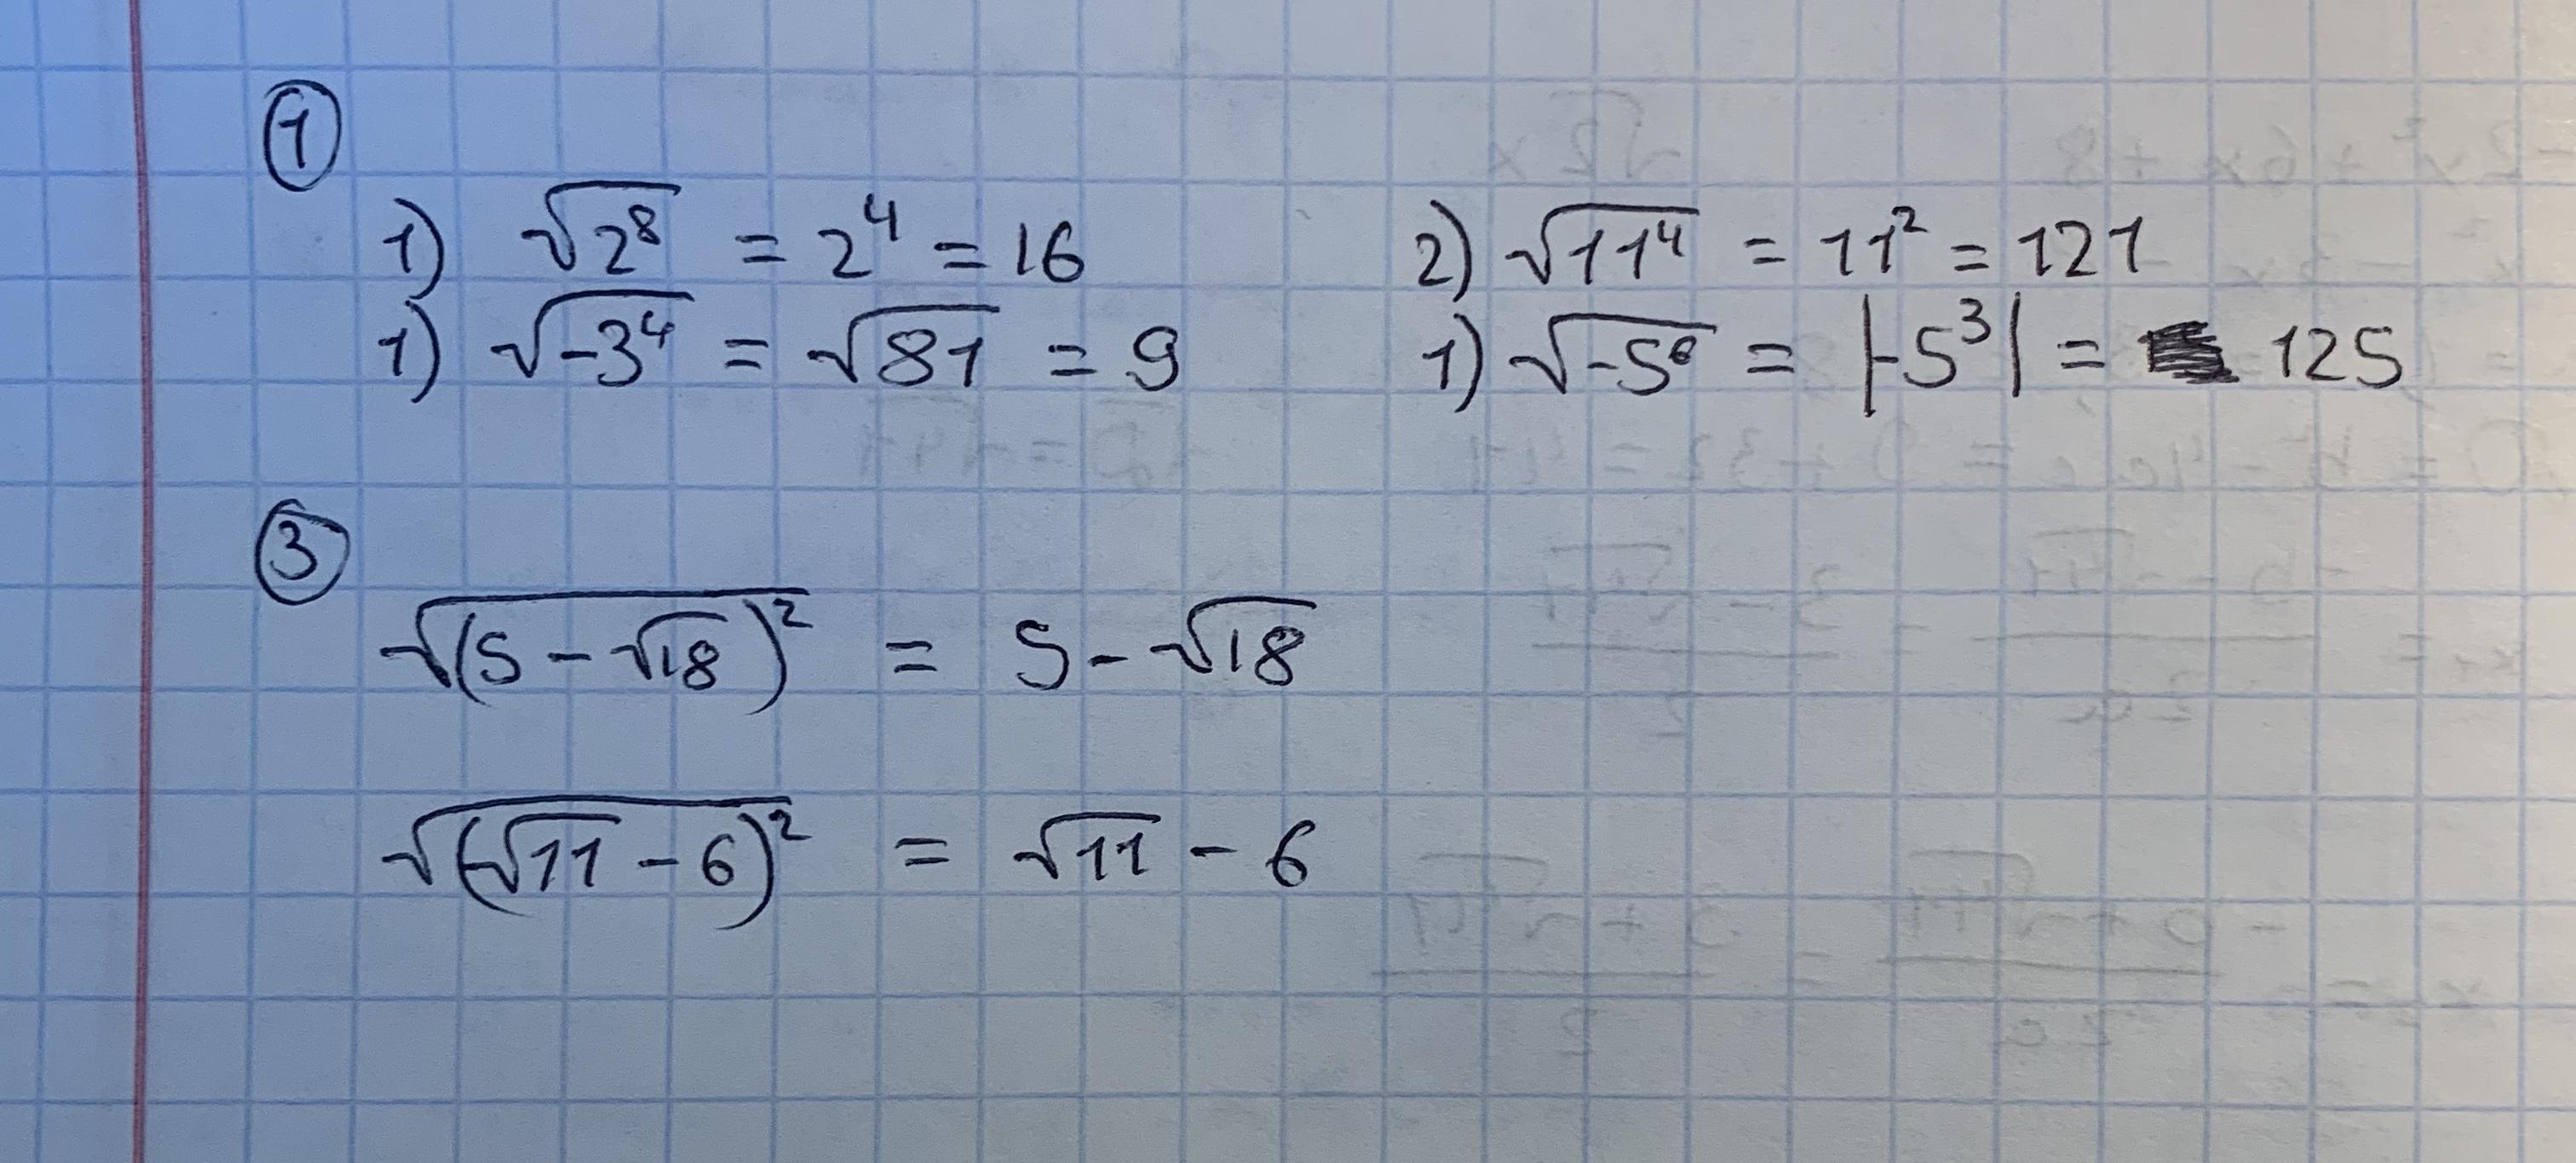 ①
1) √2⁸ = 2⁴ = 16 2) √11⁴ = 11² = 121
1) √-3⁴ = √81 = 9 1) √-5⁶ = |-5³| = 125
③
√(5 - √18)² = 5 - √18
√(√11 - 6)² = √11 - 6